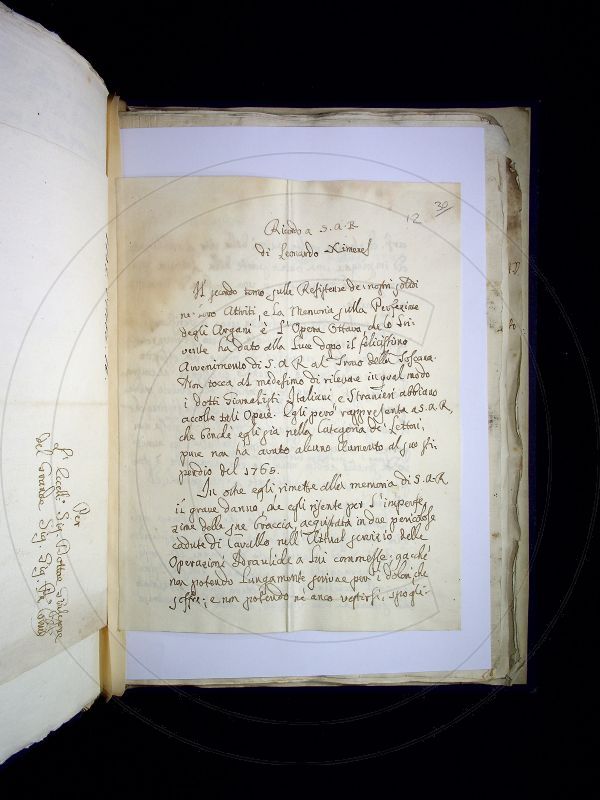 12
30
Ricordo a S. A. R
di Leonardo Ximenes
Il secondo tomo sulle Resistenze de' nostri solidi
ne' loro Attriti, e La Memoria sulla Perfezione
degli Argani è L'Opera Ottava che lo Scri-
vente ha dato alla Luce dopo il felicissimo
Avvenimento di S. A. R al Trono della Toscana.
Non tocca al medesimo di rilevare in qual modo
i dotti Giornalisti Italiani, e Stranieri abbiano
accolte tali Opere. Egli però rappresenta a S. A. R,
che benchè egli già nella Categoria de' Lettori,
pure non ha avuto alcuno Aumento al suo sti-
pendio del 1765.
In oltre egli rimette alla memoria di S. A. R
il grave danno, che egli risente per L'imperfe-
zione delle sue braccia, acquistata in due pericolose
cadute di Cavallo nell'Attual servizio delle
Operazioni Idrauliche a Lui commesse: giacchè
non potendo Lungamente scrivere per i dolori che
soffre; e non potendo nè anco vestirsi, spogli-
Per